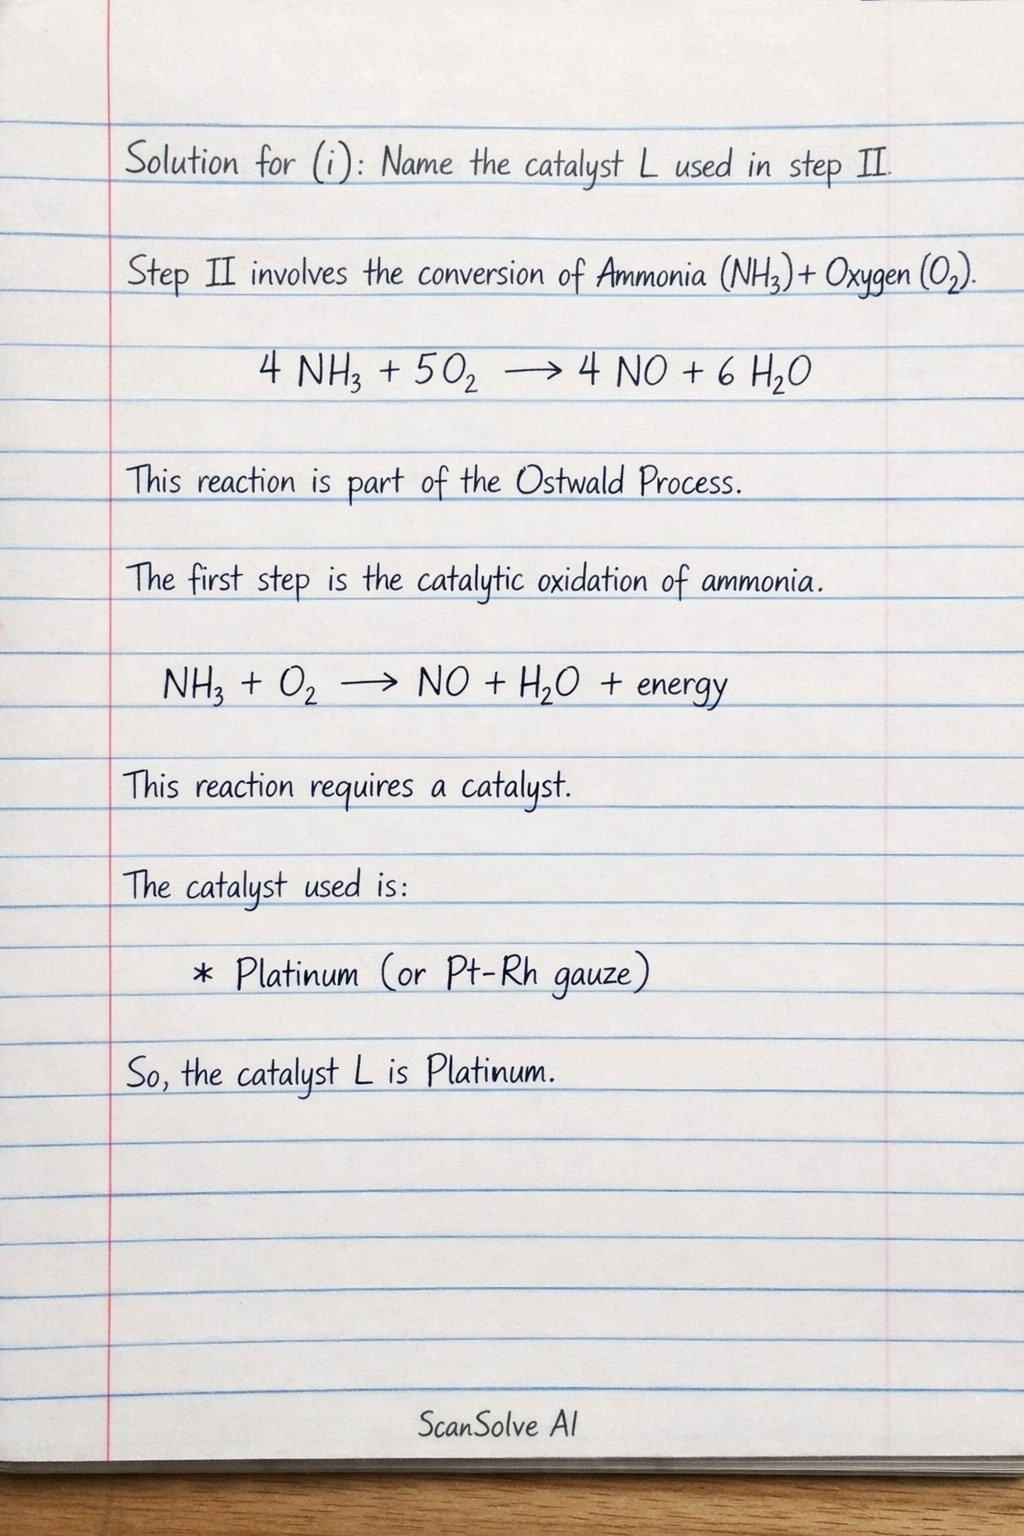 Solution for (i): Name the catalyst L used in step II.
Step II involves the conversion of Ammonia (NH₃) + Oxygen (O₂).
4 NH₃ + 5O₂ → 4 NO + 6 H₂O
This reaction is part of the Ostwald Process.
The first step is the catalytic oxidation of ammonia.
NH₃ + O₂ → NO + H₂O + energy
This reaction requires a catalyst.
The catalyst used is:
* Platinum (or Pt-Rh gauze)
So, the catalyst L is Platinum.
ScanSolve AI